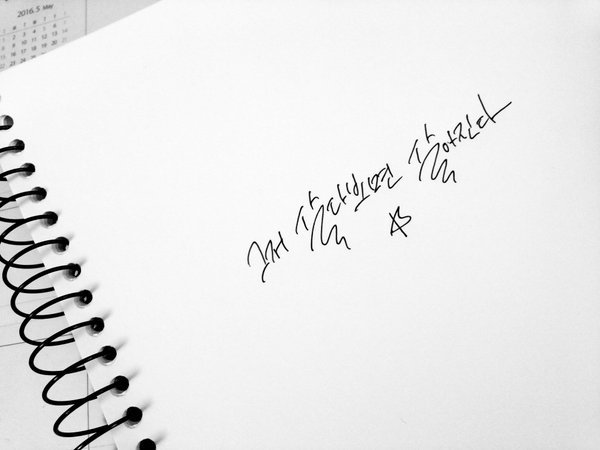 2016. 5 May
그저 살다보면 살아진다